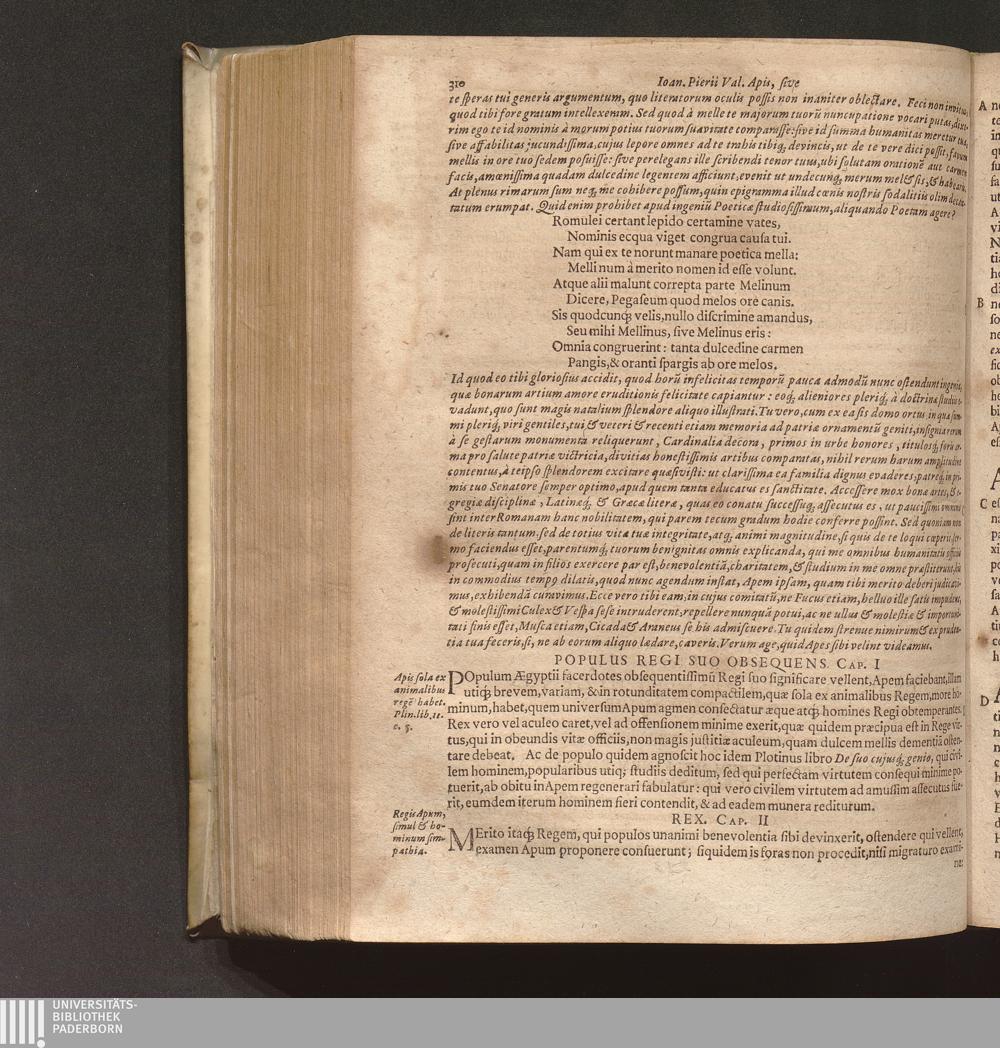 310 Ioan. Pierii Val. Apis, sive
te speras tui generis argumentum, quo literatorum oculis possis non inaniter oblectare. Feci non invitus,
quod tibi fore gratum intellexerim. Sed quod à melle te majorum tuorũ nuncupatione vocari putas, dixe-
rim ego te id nominis à morum potius tuorum suavitate comparasse: sive id summa humanitas meretur tua,
sive affabilitas jucundissima, cujus lepore omnes ad te trahis tibiq; devincis, ut de te vere dici possit, favum
mellis in ore tuo sedem posuisse: sive perelegans ille scribendi tenor tuus, ubi solutam orationẽ aut carmen
facis, amœnissima quadam dulcedine legentem afficiunt, evenit ut undecunq; merum mel & sis, & habearis.
At plenus rimarum sum neq; me cohibere possum, quin epigramma illud cœnis nostris sodalitiis olim decan-
tatum erumpat. Quid enim prohibet apud ingeniũ Poeticæ studiosissimum, aliquando Poetam agere?
Romulei certant lepido certamine vates,
Nominis ecqua viget congrua causa tui.
Nam qui ex te norunt manare poetica mella:
Mellinum à merito nomen id esse volunt.
Atque alii malunt correpta parte Melinum
Dicere, Pegaseum quod melos ore canis.
Sis quodcunq; velis, nullo discrimine amandus,
Seu mihi Mellinus, sive Melinus eris:
Omnia congruerint: tanta dulcedine carmen
Pangis, & oranti spargis ab ore melos.
Id quod eo tibi gloriosius accidit, quod horũ infelicitas temporũ pauca admodũ nunc ostendunt ingenia,
quæ bonarum artium amore eruditionis felicitate capiantur: eoq; alieniores pleriq; à doctrinæ studiis e-
vadunt, quo sunt magis natalium splendore aliquo illustrati. Tu vero, cum ex ea sis domo ortus in qua sum-
mi pleriq; viri gentiles, tui & veteri & recenti etiam memoria ad patriæ ornamentũ geniti, insignia rerum
à se gestarum monumenta reliquerunt, Cardinalia decora, primos in urbe honores, titulosq; foris ar-
ma pro salute patriæ victricia, divitias honestissimis artibus comparatas, nihil rerum harum amplitudine
contentus, à teipso splendorem excitare quæsivisti: ut clarissima ea familia dignus evaderes, patreq; in pri-
mis tuo Senatore semper optimo, apud quem tanta educatus es sanctitate. Accessere mox bonæ artes, & e-
gregiæ disciplinæ, Latinæq; & Græcæ literæ, quas eo conatu successuq; assecutus es, ut paucissimi omnino
sint inter Romanam hanc nobilitatem, qui parem tecum gradum hodie conferre possint. Sed quoniam non
de literis tantum, sed de totius vitæ tuæ integritate, atq; animi magnitudine, si quis de te loqui cœperit, ser-
mo faciendus esset, parentumq; tuorum benignitas omnis explicanda, qui me omnibus humanitatis officiis
prosecuti, quam in filios exercere par est, benevolentiã, charitatem, & studium in me omne præstiterunt, his
in commodius tempꝯ dilatis, quod nunc agendum instat, Apem ipsam, quam tibi merito deberi judicavi-
mus, exhibendã curavimus. Ecce vero tibi eam; in cujus comitatũ, ne Fucus etiam, helluo ille satis impudens,
& molestissimi Culex & Vespa sese intruderent, repellere nunquã potui, ac ne ullus & molestiæ & importuni-
tati finis esset, Musca etiam, Cicada & Araneus se his admiscuere. Tu quidem strenue nimirum & ex pruden-
tia tua feceris, si, ne ab eorum aliquo lædare, caveris. Verum age, quid Apes sibi velint videamus.
POPULUS REGI SUO OBSEQUENS. CAP. I
Apis sola ex
animalibus
regẽ habet.
Plin. lib. 11.
c. 5.
POpulum Ægyptii sacerdotes obsequentissimũ Regi suo significare vellent, Apem faciebant, illam
utiq; brevem, variam, & in rotunditatem compactilem, quæ sola ex animalibus Regem, more ho-
minum, habet, quem universum Apum agmen consectatur æque atq; homines Regi obtemperantes.
Rex vero vel aculeo caret, vel ad offensionem minime exerit, quæ quidem præcipua est in Rege vir-
tus, qui in obeundis vitæ officiis, non magis justitiæ aculeum, quam dulcem mellis clementiã osten-
tare debeat. Ac de populo quidem agnoscit hoc idem Plotinus libro De suo cujusq; genio, qui civi-
lem hominem, popularibus utiq; studiis deditum, sed qui perfectam virtutem consequi minime po-
tuerit, ab obitu in Apem regenerari fabulatur: qui vero civilem virtutem ad amussim assecutus fue-
rit, eumdem iterum hominem fieri contendit, & ad eadem munera rediturum.
REX. CAP. II
Regis Apum,
simul & ho-
minum sim-
pathia.
MErito itaq; Regem, qui populos unanimi benevolentia sibi devinxerit, ostendere qui vellent,
examen Apum proponere consuerunt; siquidem is foras non procedit, nisi migraturo exami-
ne:
A
B
C
D
UNIVERSITÄTS-
BIBLIOTHEK
PADERBORN